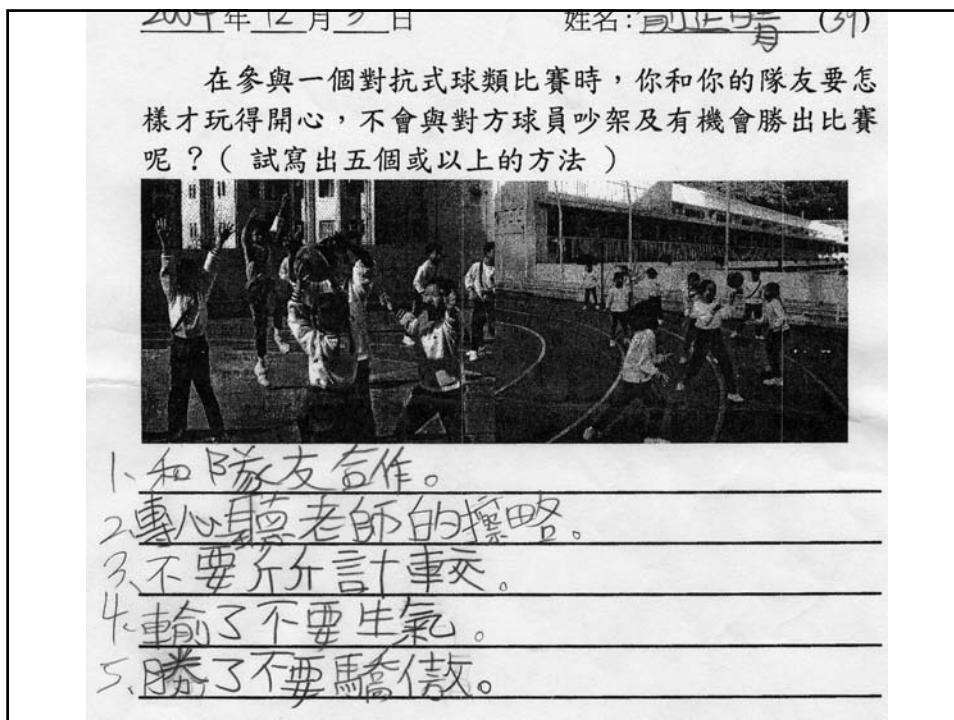 2004年12月3日 姓名: (39)
在參與一個對抗式球類比賽時，你和你的隊友要怎
樣才玩得開心，不會與對方球員吵架及有機會勝出比賽
呢？（ 試寫出五個或以上的方法 ）
1、和隊友合作。
2、專心聽老師的擦略。
3、不要斤斤計較。
4、輸了不要生氣。
5、勝了不要驕傲。